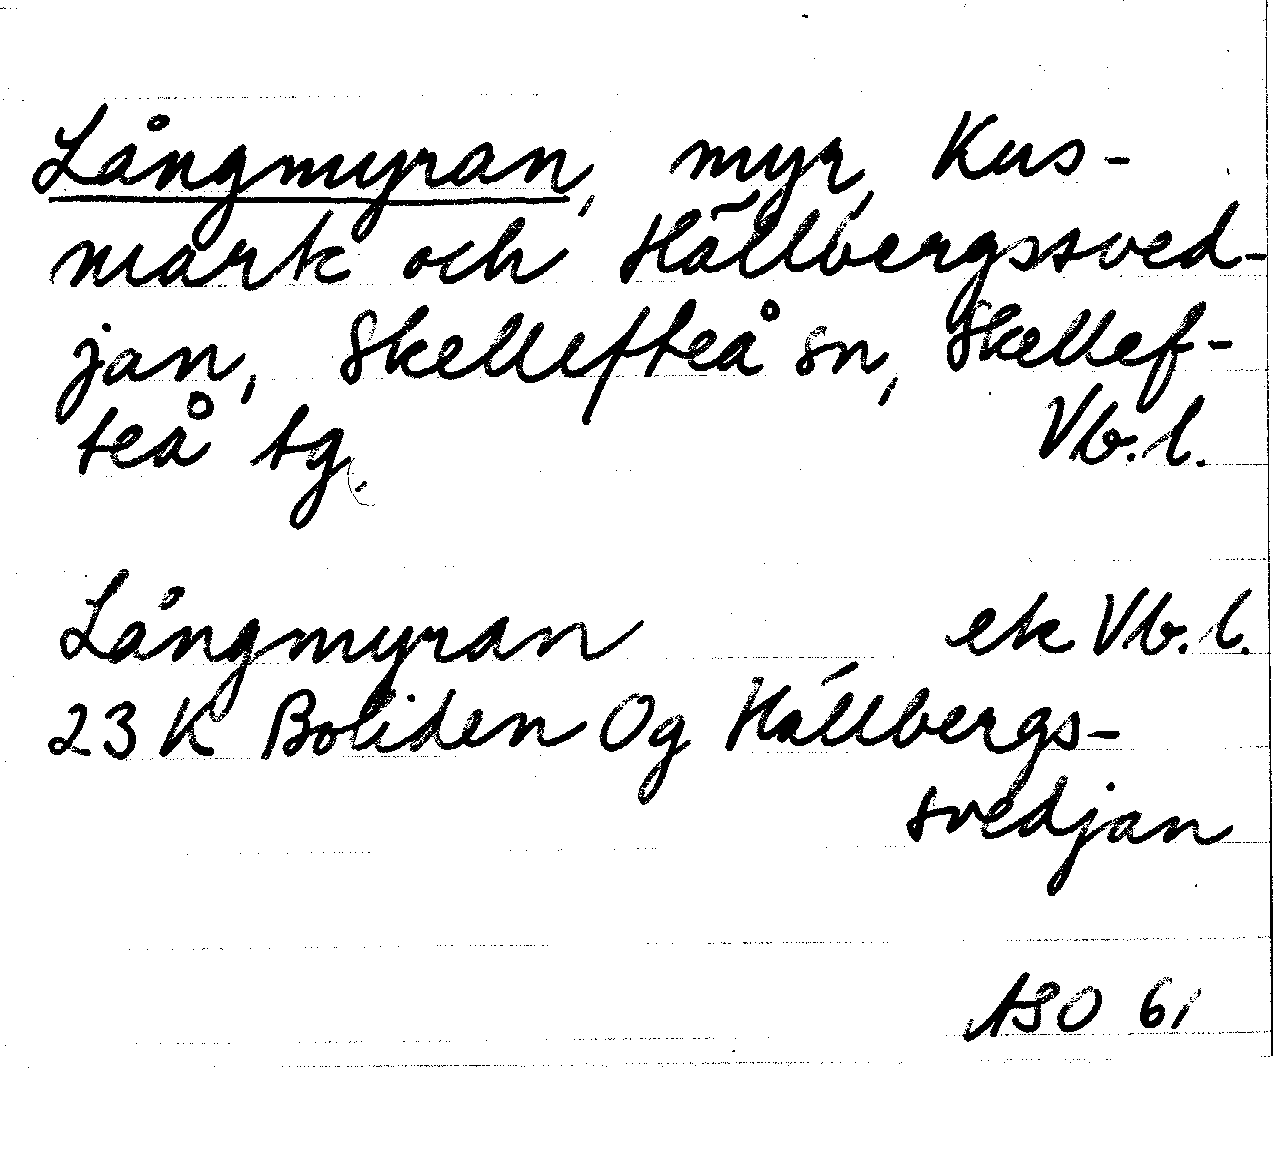 Långmyran, myr, Kus-
mark och Hällbergssved-
jan, Skellefteå sn, Skellef-
teå tg. Vb. l.
Långmyran ek Vb. l.
23 K Boliden Og Hällbergs-
svedjan
ASO 61